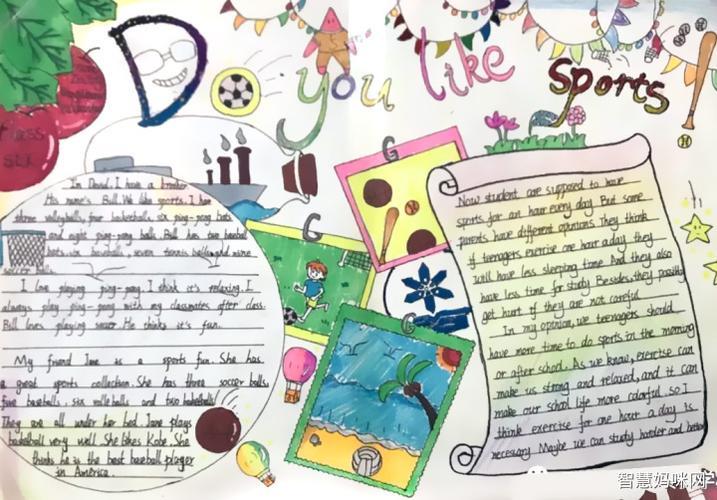 Do you like sports
In David. I have a brother.
His name's Bill. We like sports. I have
three volleyballs, four basketballs, six ping-pong bats
and eight ping-pong balls. Bill has two baseball
bats, six baseballs, seven tennis balls and nine
soccer balls.
I love playing ping-pong. I think it's relaxing. I
always play ping-pong with my classmates after class.
Bill loves playing soccer. He thinks it's fun.
My friend Jane is a sports fun. She has
a great sports collection. She has three soccer balls,
five baseballs, six volleballs and two basketballs.
They are all under her bed. Jane plays
basketball very well. She likes Kobe. She
thinks he is the best baseball player
in America.
Now student are supposed to have
sports for an hour every day. But some
parents have different opinions. They think
if teenagers exercise one hour a day they
will have less sleeping time. And they also
have less time for study. Besides, they possibly
get hurt if they are not careful.
In my opinion, we teenagers should
have more time to do sports in the morning
or after school. As we know, exercise can
make us strong and relaxed, and it can
make our school life more colorful. so I
think exercise for one hour a day is
necessary. Maybe we can study harder and better
G
G
G
智慧妈咪网